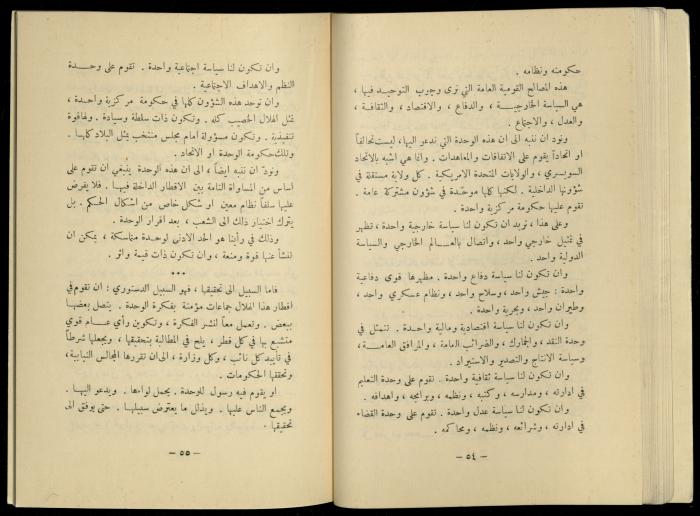 حكومته ونظامه .
هذه المصالح القومية العامة التي نرى وجوب التوحيد فيها ،
هي السياسة الخارجية ، والدفاع ، والاقتصاد ، والثقافة ،
والعدل ، والاجتماع .
ونود ان ننبه الى ان هذه الوحدة التي ندعو اليها ، ليست تحالفاً
او اتحاداً يقوم على الاتفاقات والمعاهدات . وانما هي اشبه بالاتحاد
السويسري ، والولايات المتحدة الاميركية . كل ولاية مستقلة في
شؤونها الداخلية . لكنها كلها موحدة في شؤون مشتركة عامة .
تقوم عليها حكومة مركزية واحدة .
وعلى هذا ، نريد ان تكون لنا سياسة خارجية واحدة ، تظهر
في تمثيل خارجي واحد ، واتصال بالعالم الخارجي والسياسة
الدولية واحد .
وان تكون لنا سياسة دفاع واحدة . مظهرها قوى دفاعية
واحدة : جيش واحد ، وسلاح واحد ، ونظام عسكري واحد ،
وطيران واحد ، وبحرية واحدة .
وان تكون لنا سياسة اقتصادية ومالية واحدة . تتمثل في
وحدة النقد ، والجمارك ، والضرائب العامة ، والمرافق العامة ،
وسياسة الانتاج والتصدير والاستيراد .
وان تكون لنا سياسة ثقافية واحدة . تقوم على وحدة التعليم
في ادارته ، ومدارسه ، وكتبه ، ونظمه ، وبرامجه ، واهدافه .
وان تكون لنا سياسة عدل واحدة . تقوم على وحدة القضاء
في ادارته ، وشرائعه ، ونظمه ، ومحاكمه .
– ٥٤ –
وان تكون لنا سياسة اجتماعية واحدة . تقوم على وحدة
النظم والاهداف الاجتماعية .
وان توحد هذه الشؤون كلها في حكومة مركزية واحدة ،
تمثل الهلال الخصيب كله . وتكون ذات سلطة وسيادة . ولها قوة
تنفيذية . وتكون مسؤولة امام مجلس منتخب يمثل البلاد كلها .
وتلك حكومة الوحدة او الاتحاد .
ونود ان ننبه ايضاً ، الى ان هذه الوحدة ينبغي ان تقوم على
أساس من المساواة التامة بين الاقطار الداخلة فيها . فلا يفرض
عليها سلفاً نظام معين او شكل خاص من اشكال الحكم . بل
يترك اختيار ذلك الى الشعب ، بعد اقرار الوحدة .
وذلك في رأينا هو الحد الادنى لوحدة متماسكة ، يمكن ان
تنشأ عنها قوة ومنعة ، وان تكون ذات قيمة واثر .
***
فاما السبيل الى تحقيقها ، فهو السبيل الدستوري : ان تقوم في
اقطار هذا الهلال جماعات مؤمنة بفكرة الوحدة . يتصل بعضها
ببعض . وتعمل معاً لنشر الفكرة ، وتكوين رأي عام قوي
متشبع بها في كل قطر ، يلح في المطالبة بتحقيقها ، ويجعلها شرطاً
في تأييد كل نائب ، وكل وزارة ، الى ان تقررها المجالس النيابية ،
وتحققها الحكومات .
او يقوم فيه رسول للوحدة . يحمل لواءها . ويدعو اليها .
ويجمع الناس عليها . ويذلل ما يعترض سبيلها . حتى يوفق الى
تحقيقها .
– ٥٥ –